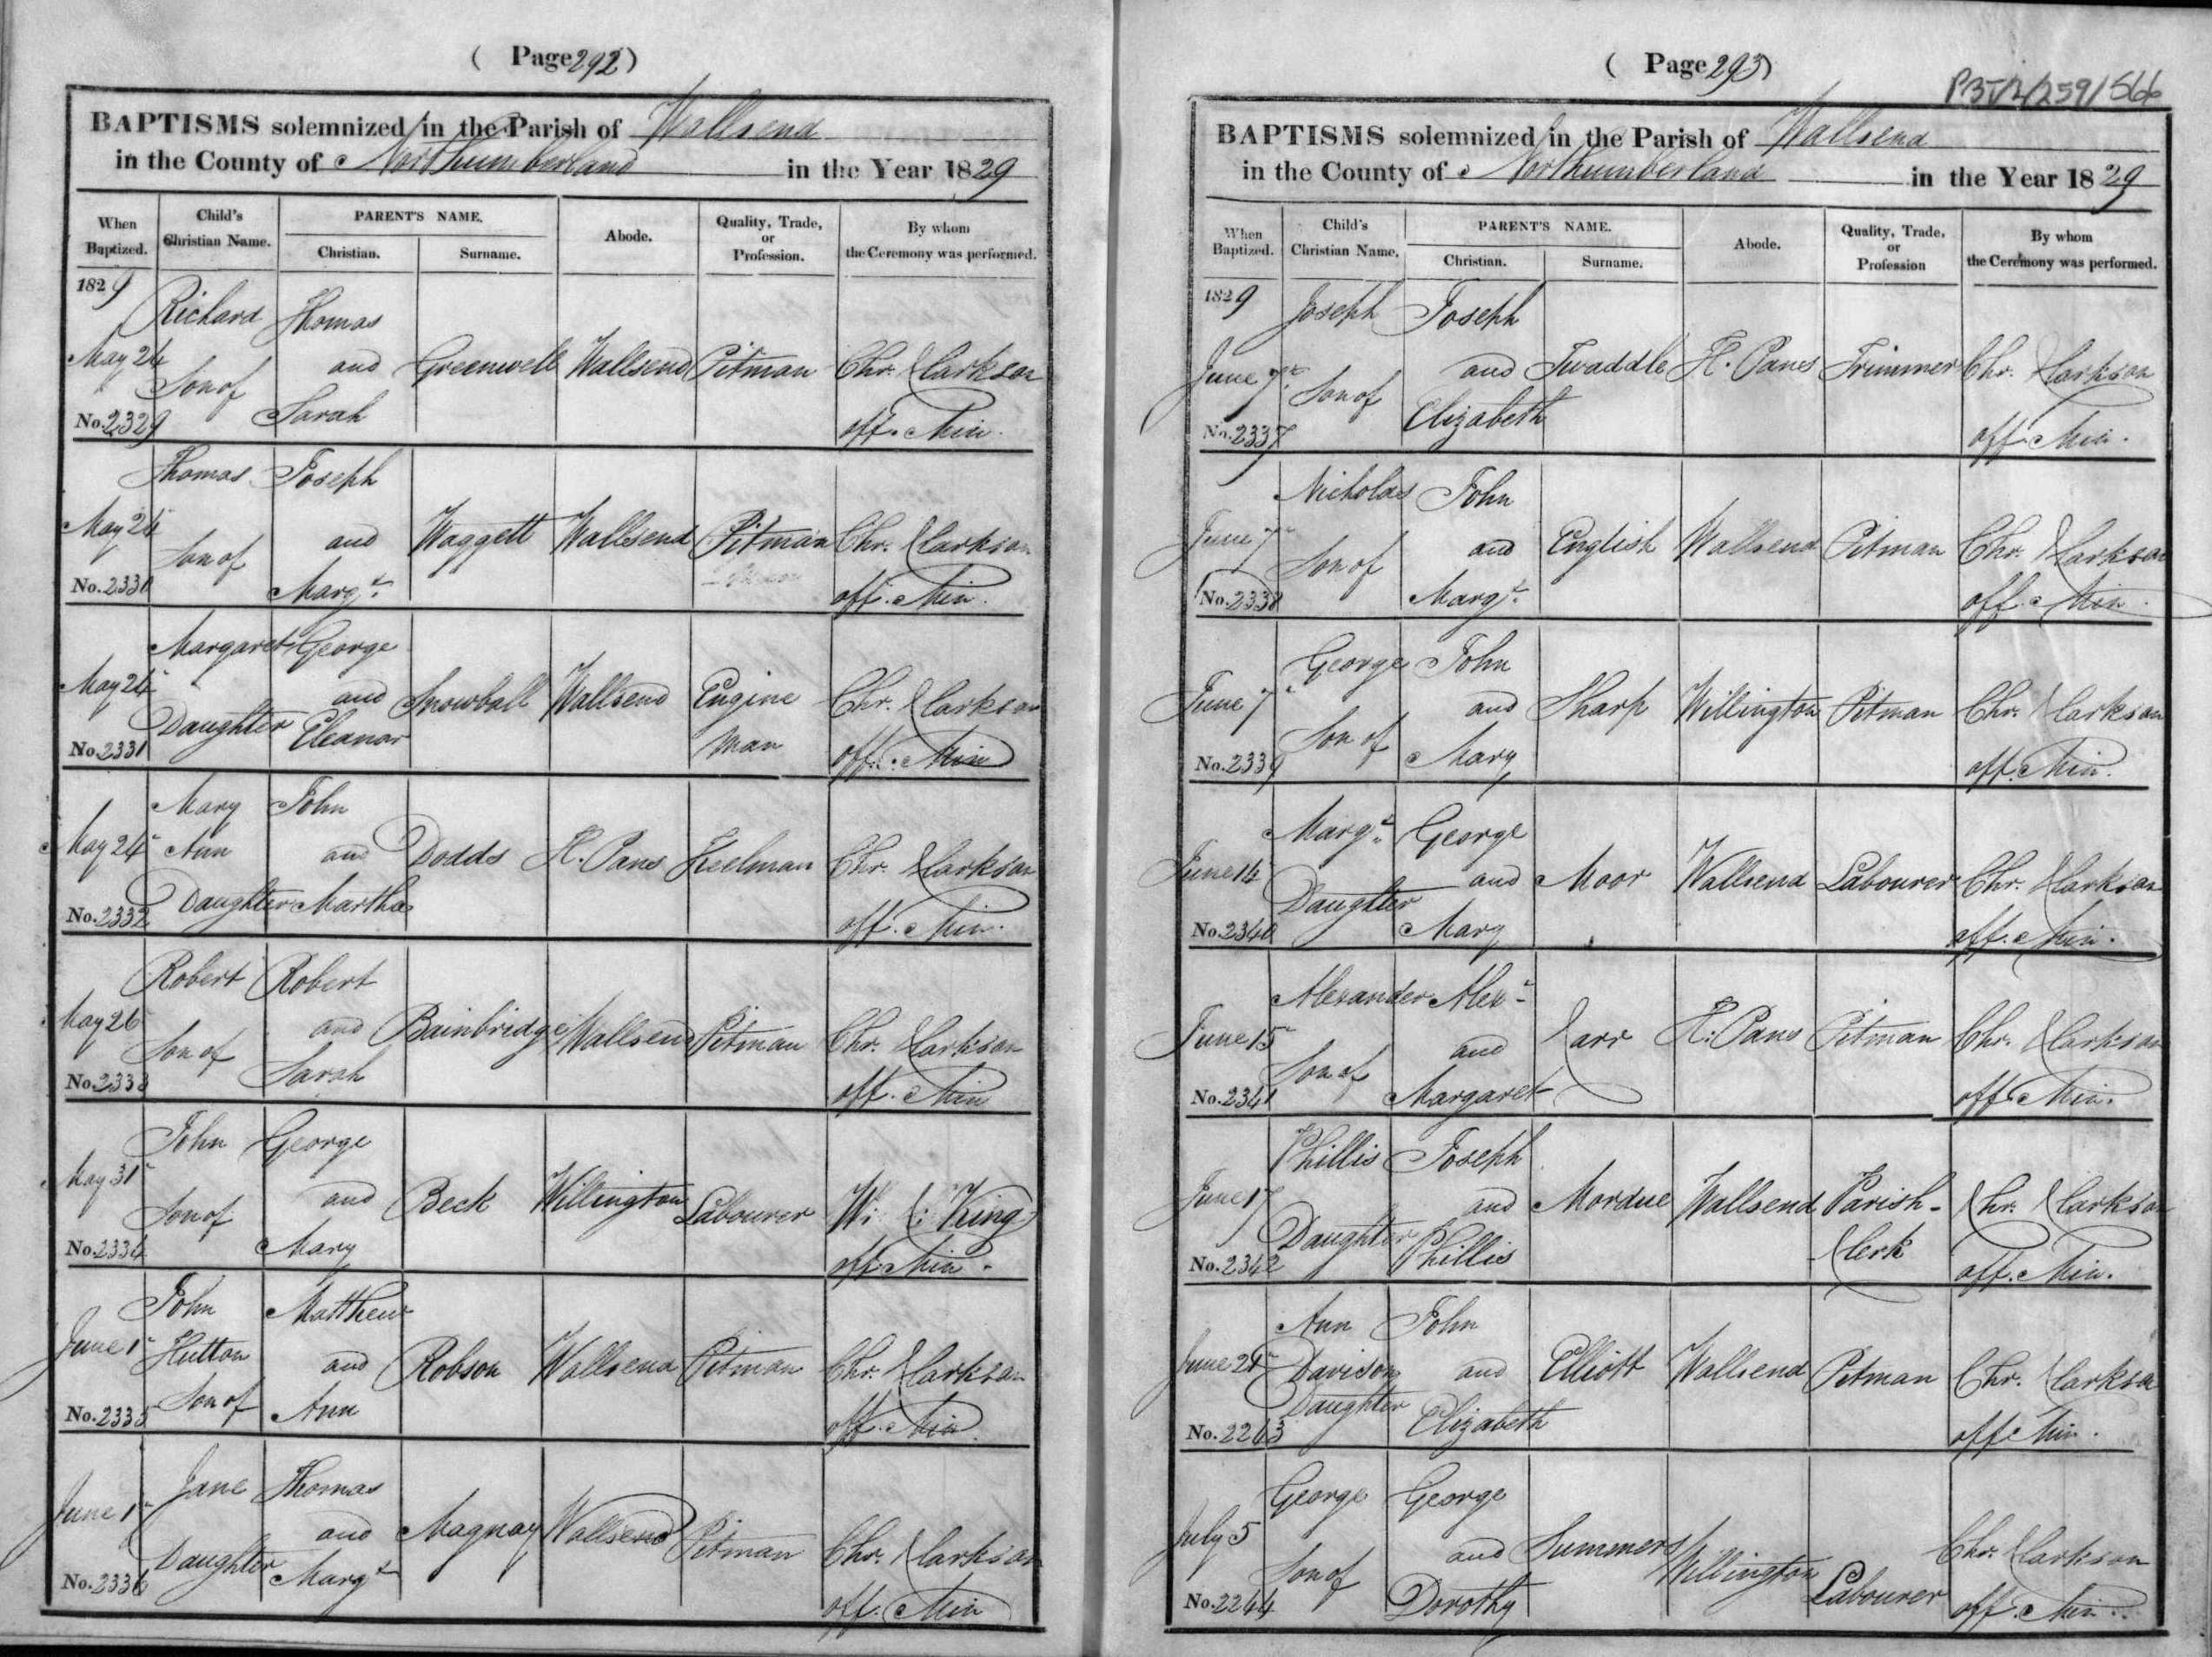 ( Page 292 )
BAPTISMS solemnized in the Parish of Wallsend
in the County of Northumberland in the Year 1829
When Baptized. Child's Christian Name. PARENT'S NAME. Christian. Surname. Abode. Quality, Trade, or Profession. By whom the Ceremony was performed.
1829 Richard Thomas
May 24 Son of and Greenwell Wallsend Pitman Chr. Clarkson
No. 2329 Sarah off. Min.
Thomas Joseph
May 24 Son of and Waggett Wallsend Pitman Chr. Clarkson
No. 2330 Margt. off. Min.
Margaret George
May 24 and Snowball Wallsend Engine Chr. Clarkson
No. 2331 Daughter Eleanor man off. Min
Mary John
May 24 Ann and Dodds H. Pans Keelman Chr. Clarkson
No. 2332 Daughter Martha off. Min.
Robert Robert
May 26 Son of and Bainbridge Wallsend Pitman Chr. Clarkson
No. 2333 Sarah off. Min
John George
May 31 Son of and Beck Willington Labourer W. C. King
No. 2334 Mary off. Min.
John Matthew
June 1 Hutton and Robson Wallsend Pitman Chr. Clarkson
No. 2335 Son of Ann off. Min.
Jane Thomas
June 1 and Magnay Wallsend Pitman Chr. Clarkson
No. 2336 Daughter Margt off. Min
( Page 293 )
BAPTISMS solemnized in the Parish of Wallsend
in the County of Northumberland in the Year 1829
When Baptized. Child's Christian Name. PARENT'S NAME. Christian. Surname. Abode. Quality, Trade, or Profession By whom the Ceremony was performed.
1829 Joseph Joseph
June 7 Son of and Twaddle H. Pans Trimmer Chr. Clarkson
No. 2337 Elizabeth off. Min.
Nicholas John
June 7 Son of and English Wallsend Pitman Chr. Clarkson
No. 2338 Margt. off. Min.
George John
June 7 Son of and Sharp Willington Pitman Chr. Clarkson
No. 2339 Mary off. Min.
Margt. George
June 14 and Moor Wallsend Labourer Chr. Clarkson
No. 2340 Daughter Mary off. Min.
Alexander Alexr
June 15 Son of and Carr H. Pans Pitman Chr. Clarkson
No. 2341 Margaret off. Min.
Phillis Joseph
June 17 and Mordue Wallsend Parish- Chr. Clarkson
No. 2342 Daughter Phillis Clerk off. Min.
Ann John
June 21 Davison and Elliott Wallsend Pitman Chr. Clarkson
No. 2243 Daughter Elizabeth off. Min.
George George
July 5 Son of and Summers Willington Labourer Chr. Clarkson
No. 2244 Dorothy off. Min.